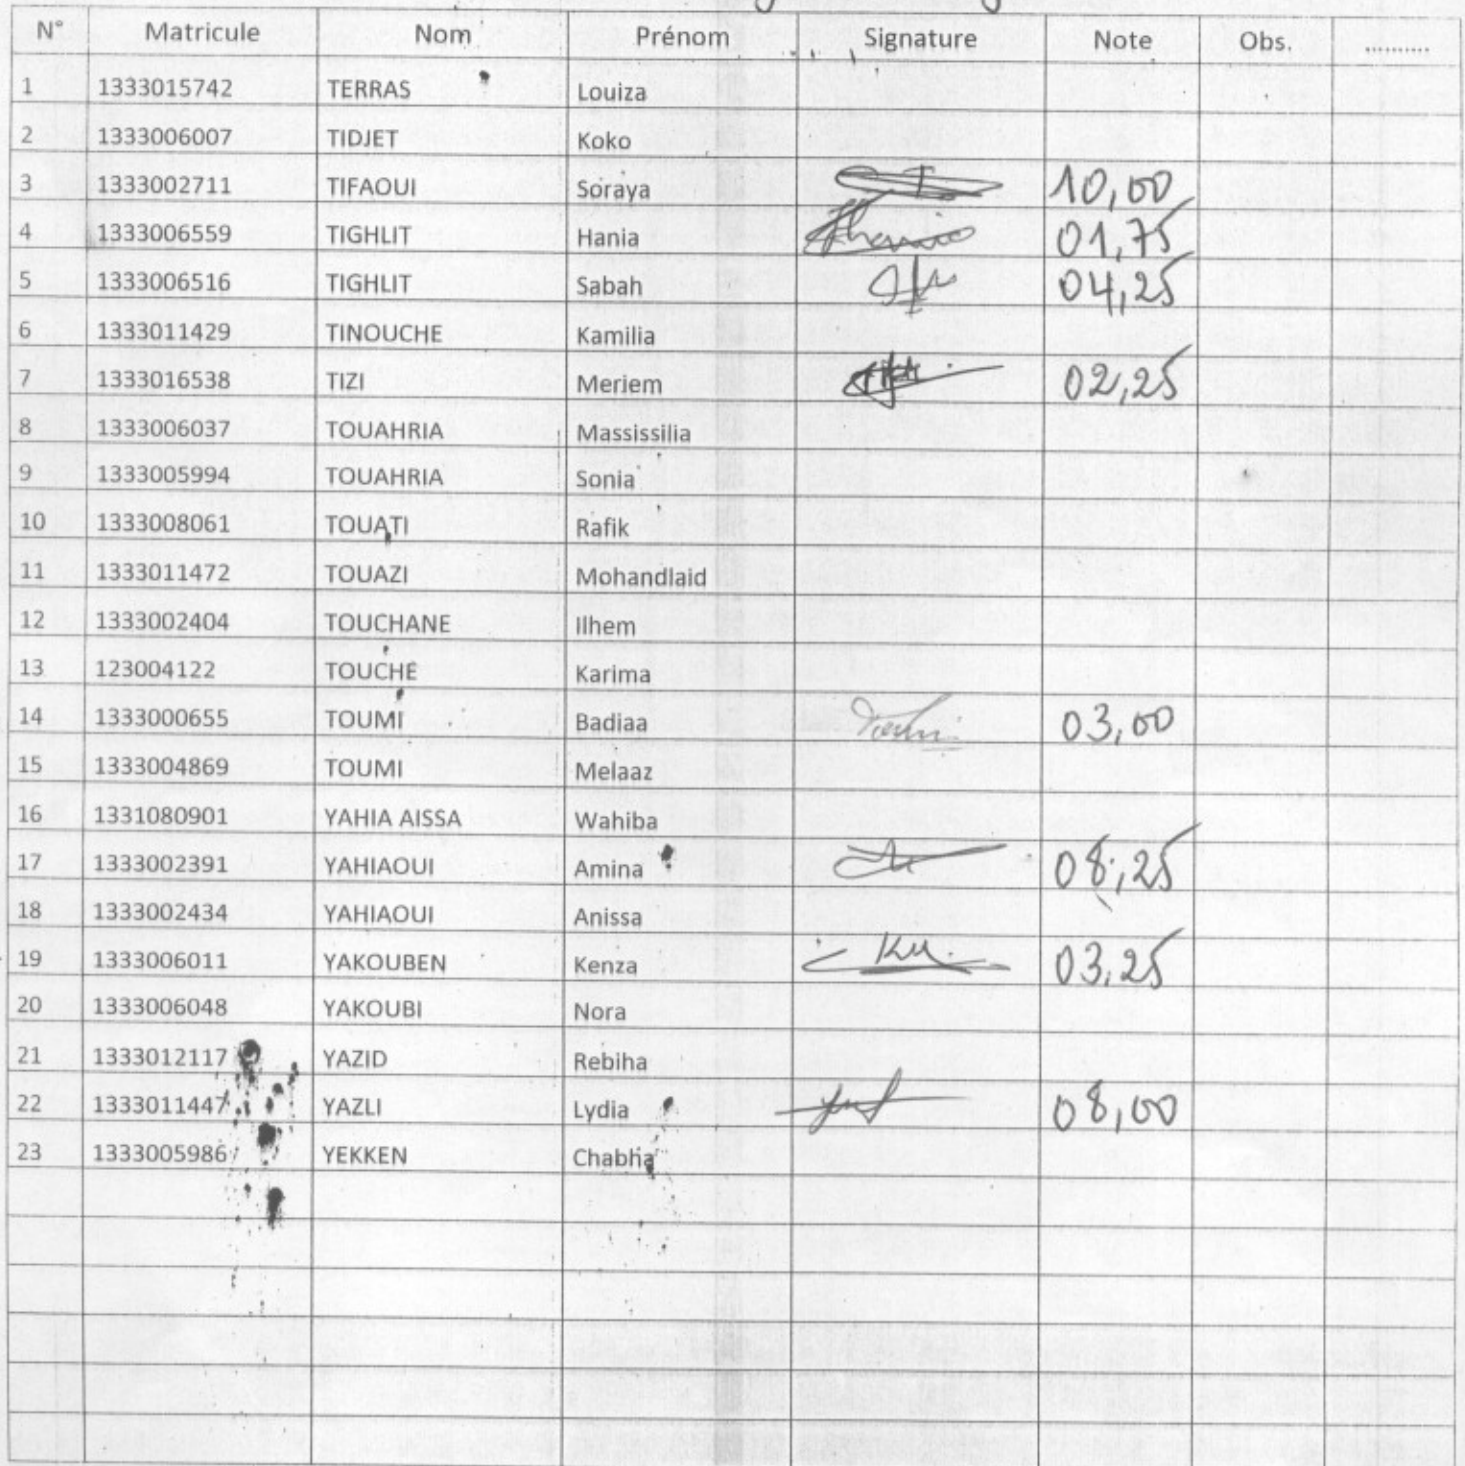 N° Matricule Nom Prénom Signature Note Obs. ..........
1 1333015742 TERRAS Louiza
2 1333006007 TIDJET Koko
3 1333002711 TIFAOUI Soraya 10,00
4 1333006559 TIGHLIT Hania 01,75
5 1333006516 TIGHLIT Sabah 04,25
6 1333011429 TINOUCHE Kamilia
7 1333016538 TIZI Meriem 02,25
8 1333006037 TOUAHRIA Massissilia
9 1333005994 TOUAHRIA Sonia
10 1333008061 TOUATI Rafik
11 1333011472 TOUAZI Mohandlaid
12 1333002404 TOUCHANE Ilhem
13 123004122 TOUCHE Karima
14 1333000655 TOUMI Badiaa 03,00
15 1333004869 TOUMI Melaaz
16 1331080901 YAHIA AISSA Wahiba
17 1333002391 YAHIAOUI Amina 08,25
18 1333002434 YAHIAOUI Anissa
19 1333006011 YAKOUBEN Kenza 03,25
20 1333006048 YAKOUBI Nora
21 1333012117 YAZID Rebiha
22 1333011447 YAZLI Lydia 08,00
23 1333005986 YEKKEN Chabha